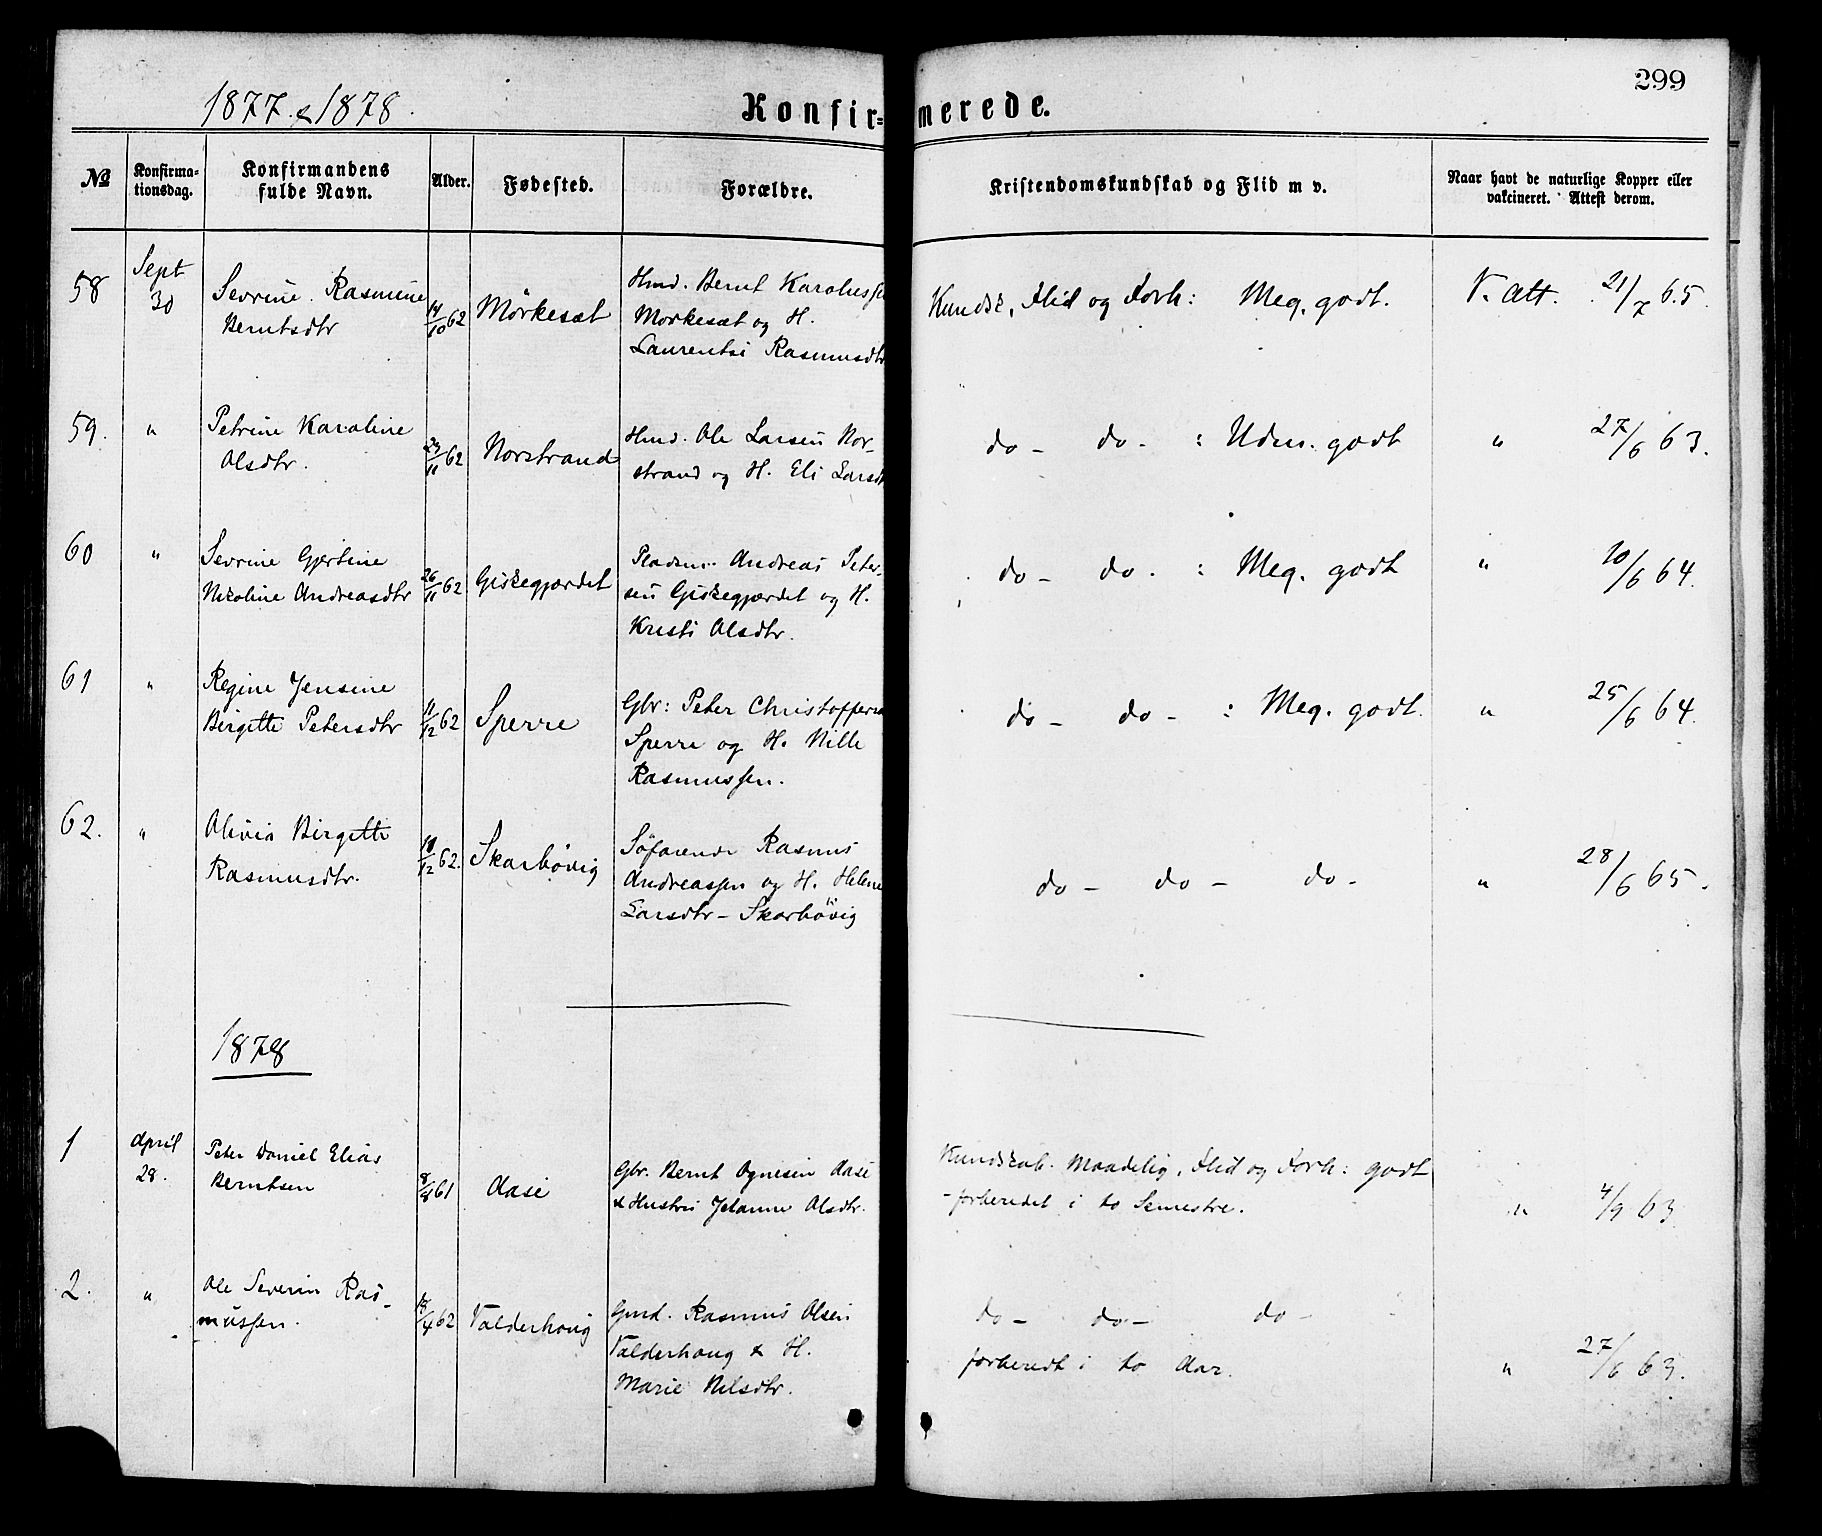 299
1877 & 1878.
Konfirmerede.
№
Konfirmationsdag.
Konfirmandens fulde Navn.
Alder.
Fødested.
Forældre.
Kristendomskundskab og Flid m v.
Naar havt de naturlige Kopper eller vakcineret. Attest derom.
58
Sept 30
Sevrine Rasmine
Berntsdtr
14/10 62
Mörkesæt
Hmd. Bernt Karolussen
Morkesæt og H.
Laurentse Rasmusdtr
Kundsk, Flid og Forh: Meg. godt.
V. Att. 21/7 65.
59.
"
Petrine Karoline
Olsdtr.
/11 62
Norstrand
Hmd. Ole Larsen Nor-
strand og H. Eli Larsdtr
do - do - : Udm. godt
" 27/6 63.
60
"
Sevrine Gjertine
Nikoline Andreasdtr
26/11 62
Giskegjærdet
Pladsm. Andreas Peter-
sen Giskegjærdet og H.
Kristi Olsdtr.
do - do - : Meg. godt
" 10/6 64.
61
"
Regine Jensine
Birgitte Petersdtr
11/12 62
Sperre
Gbr: Peter Christoffersen
Sperre og H. Nille
Rasmussen.
do - do - : Meg. godt.
" 25/6 64.
62.
"
Olivia Birgitte
Rasmusdtr.
18/12 62.
Skarbövig
Söfarende Rasmus
Andreassen og H. Helene
Larsdtr - Skarbövig
do - do - do -
" 28/6 65.
1878
1
April 28.
Peter Daniel Elias
Berntsen
8/8 61
Aase
Gbr. Bernt Ognesen Aase
& Hustru Jetanne Olsdtr.
Kundskab. Maadelig, Flid og Forh: godt
- forberedet i to Semestre.
" 4/9 63.
2.
"
Ole Severin Ras-
mussen.
/4 62
Valderhoug
Gmd. Rasmus Olsen
Valderhoug & H.
Marie Nilsdtr.
do - do - do -
forberedt i to Aar.
" 27/6 63.